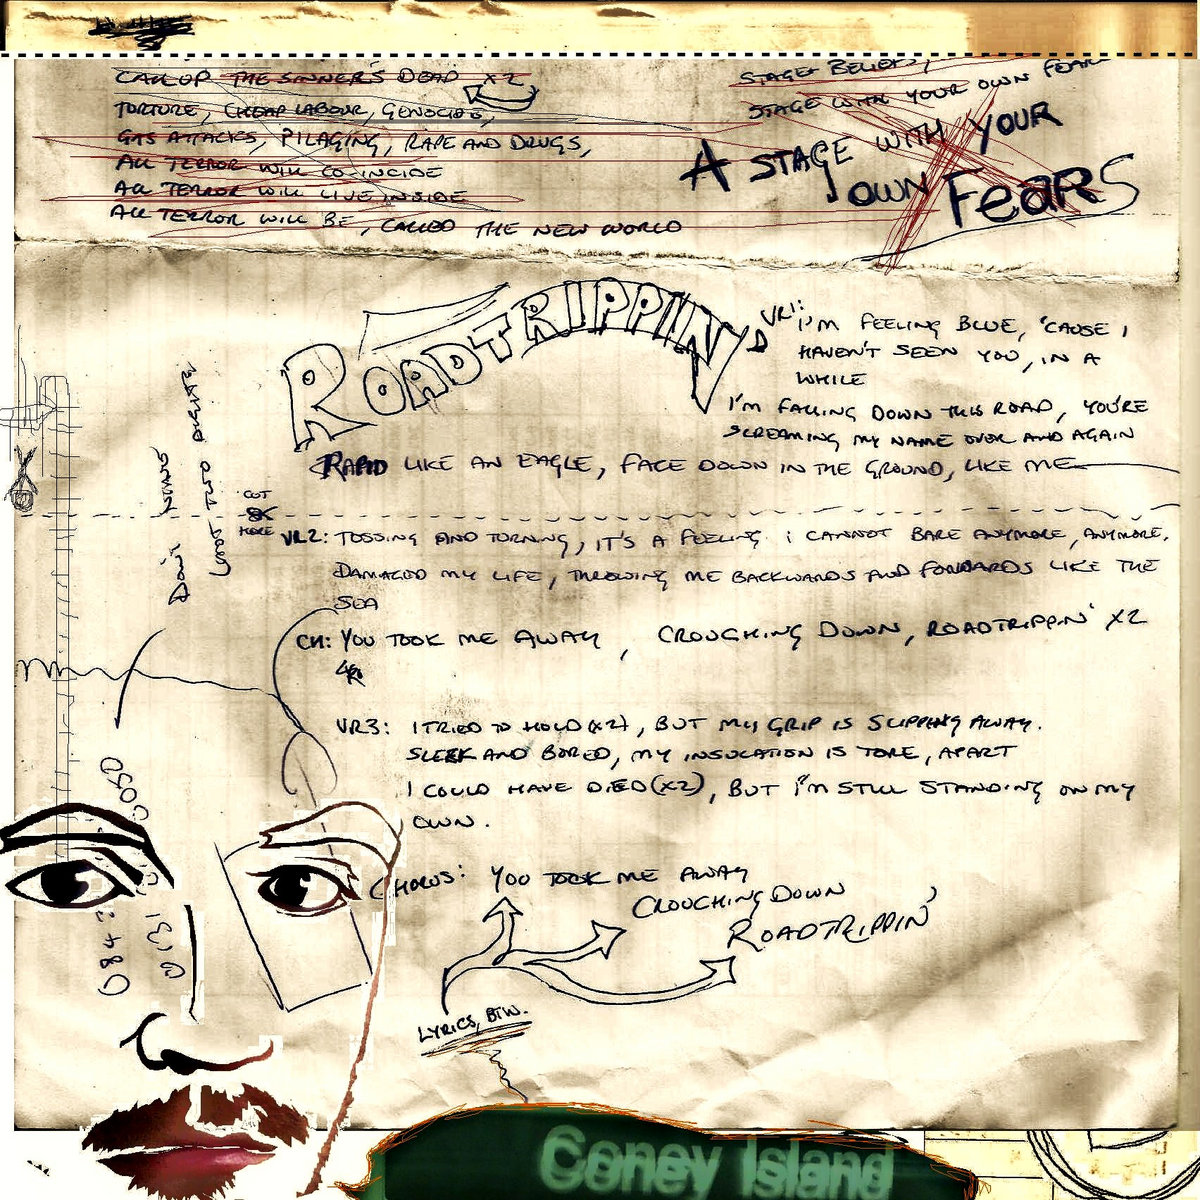 CALL UP THE SINNER'S DEAD X2
TORTURE, CHEAP LABOUR, GENOCIDE,
GAS ATTACKS, PILAGING, RAPE AND DRUGS,
ALL TERROR WILL CO-INCIDE
ALL TERROR WILL LIVE INSIDE
ALL TERROR WILL BE, CALLED THE NEW WORLD
STAGE BELIEFS,
STAGE WITH YOUR OWN FEAR
A STAGE WITH YOUR
OWN FeaRS
ROADTRIPPIN'
VR1: I'M FEELING BLUE, 'CAUSE I
HAVEN'T SEEN YOU, IN A
WHILE
I'M FALLING DOWN THIS ROAD, YOU'RE
SCREAMING MY NAME OVER AND AGAIN
RAPID LIKE AN EAGLE, FACE DOWN IN THE GROUND, LIKE ME
CUT
HERE
VR2: TOSSING AND TURNING, IT'S A FEELING I CANNOT BARE ANYMORE, ANYMORE.
DAMAGED MY LIFE, THROWING ME BACKWARDS AND FORWARDS LIKE THE
SEA
CH: YOU TOOK ME AWAY, CROUCHING DOWN, ROADTRIPPIN' X2
VR3: I TRIED TO HOLD (X2), BUT MY GRIP IS SLIPPING AWAY.
SLEEK AND BORED, MY INSULATION IS TORE, APART
I COULD HAVE DIED (X2), BUT I'M STILL STANDING ON MY
OWN.
CHORUS: YOU TOOK ME AWAY
CROUCHING DOWN
ROADTRIPPIN'
LYRICS, BTW.
Coney Island